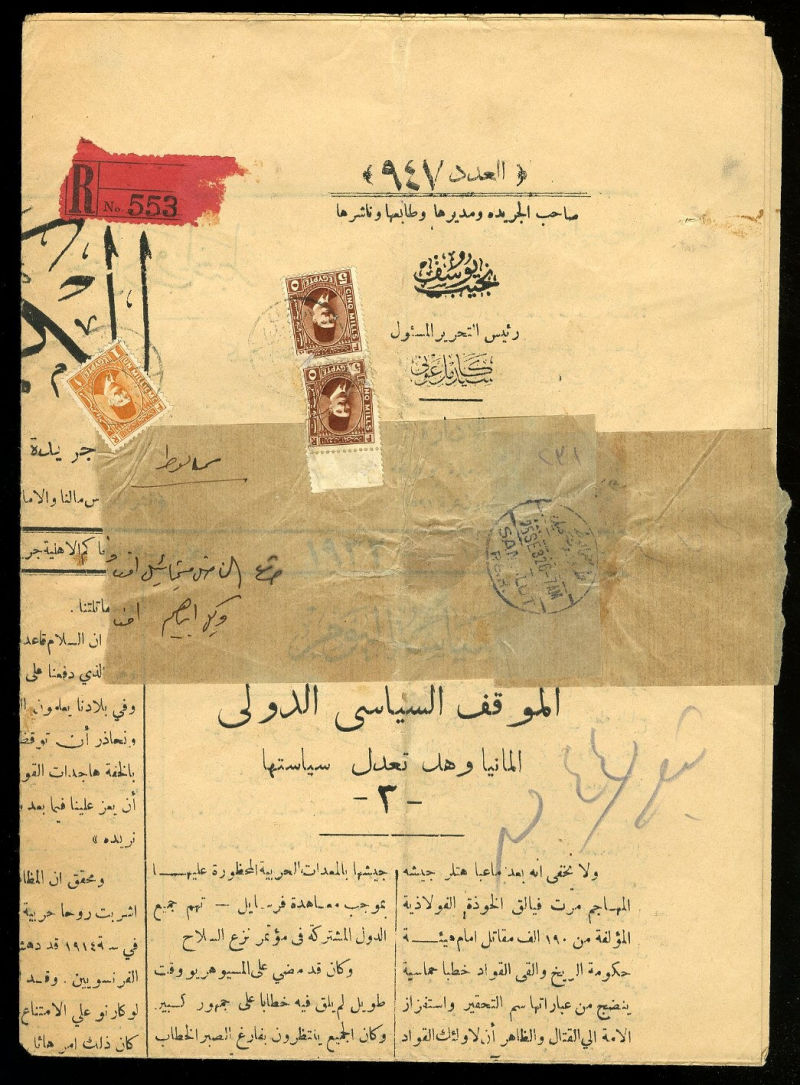 ﴿ العدد ٩٤٧ ﴾
صاحب الجريده ومديرها وطابعها وناشرها
نجيب يوسف
رئيس التحرير المسئول
R No. 553
CINQ MILLS
EGYPTE
5
٥
CINQ MILLS
EGYPTE
5
٥
EGYPTE
1
١
جريدة
س مالنا والاما
كم الاهلية جر
سمالوط
٢٣١
25 SE 32 6-7 AM
SAMALUT
الموقف السياسى الدولى
المانيا وهل تعدل سياستها
- ٣ -
ولا نخفى انه بعد ماعبا هتلر جيشه
المهاجم مرت فيالق الخوذة الفولاذية
المؤلفة من ١٩٠ الف مقاتل امام هيئة
حكومة الريخ والقى القواد خطبا حماسية
ينضح من عباراتها سم التحقير واستفزاز
الامة الي القتال والظاهر أن لاولئك القواد
جيشها بالمعدات الحربية المحظورة عليها
بموجب معاهدة فرسايل — تهم جميع
الدول المشتركة فى مؤتمر نزع السلاح
وكان قد مضي على المسيو هريو وقت
طويل لم يلق فيه خطابا على جمهور كبير
وكان الجميع ينتظرون بفارغ الصبر الخطاب
ماثلتنا .
ان السلام قاعد
الذي دفعنا على
وفي بلادنا يعلمون ال
ونحاذر أن توقظ
بالخفة هاجدات القو
أن يعز علينا فيما بعد
نريده »
ومحقق ان المظا
اشربت روحا حربية
في سنة ١٩١٤ قد دهش
الفرنسويين . وقد
لوكارنو علي الامتناع
كان ذلك امر هائا